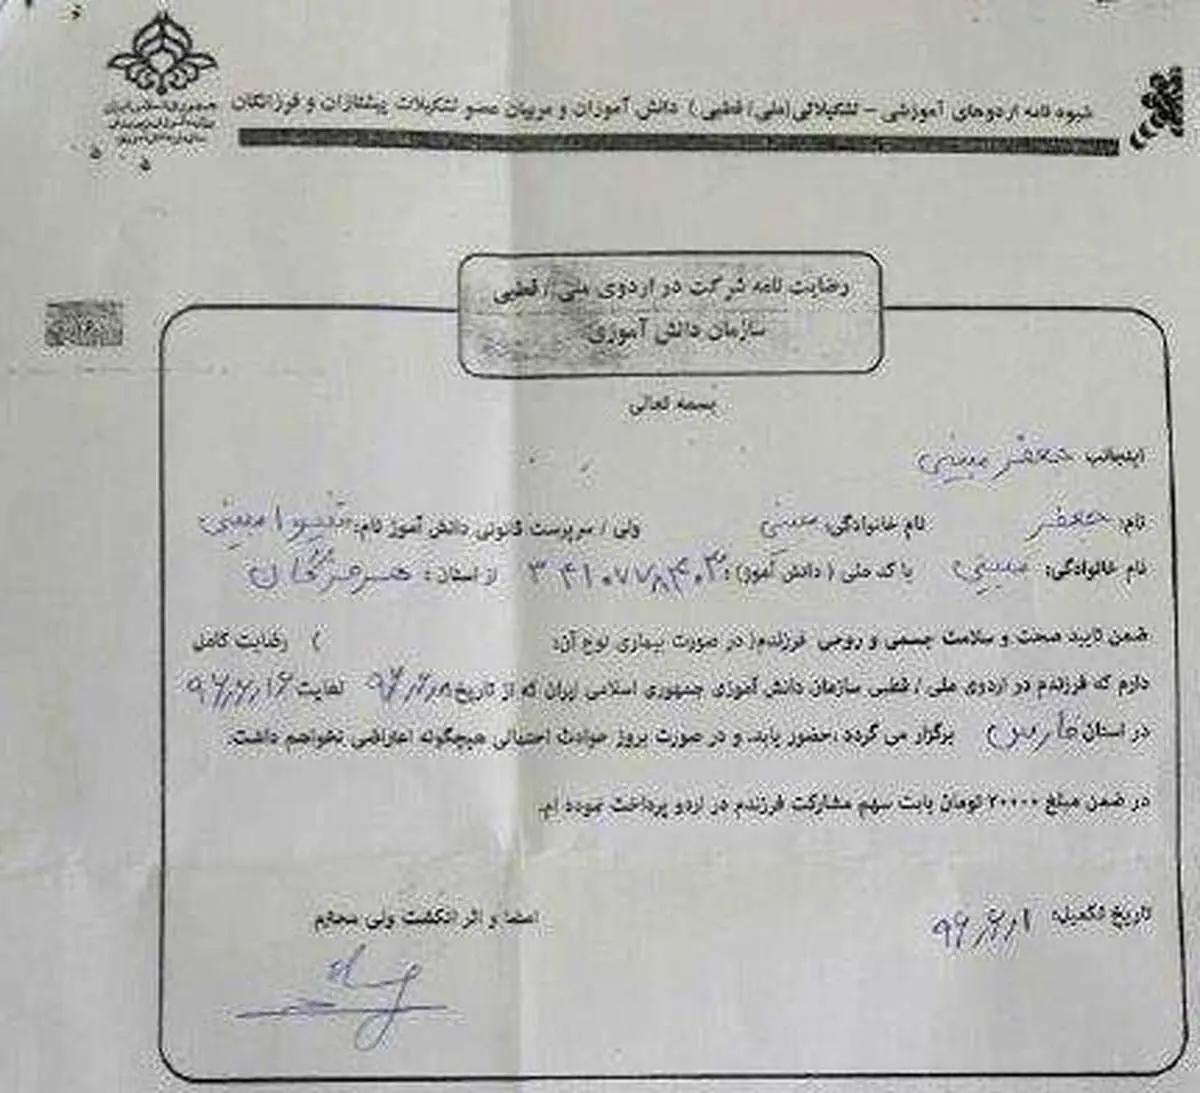 شیوه نامه اردوهای آموزشی - تشکیلاتی (ملی / قطبی) دانش آموزان و مربیان عضو تشکیلات پیشتازان و فرزانگان
جمهوری اسلامی ایران
رضایت نامه شرکت در اردوی ملی / قطبی
سازمان دانش آموزی
بسمه تعالی
اینجانب جعفر مبینی
نام: جعفر نام خانوادگی: مبینی ولی / سرپرست قانونی دانش آموز نام:
نام خانوادگی: مبینی با کد ملی ( دانش آموز): از استان: هرمزگان
ضمن تایید صحت و سلامت جسمی و روحی فرزندم( در صورت بیماری نوع آن: ) رضایت کامل
دارم که فرزندم در اردوی ملی / قطبی سازمان دانش آموزی جمهوری اسلامی ایران که از تاریخ ۹۶/۶/۸ لغایت ۹۶/۶/۱۶
در استان فارس برگزار می گردد ،حضور یابد. و در صورت بروز حوادث احتمالی هیچگونه اعتراضی نخواهم داشت.
در ضمن مبلغ ۲۰۰۰۰ تومان بابت سهم مشارکت فرزندم در اردو پرداخت نموده ام.
تاریخ تکمیل: ۹۶/۶/۱
امضا و اثر انگشت ولی محترم